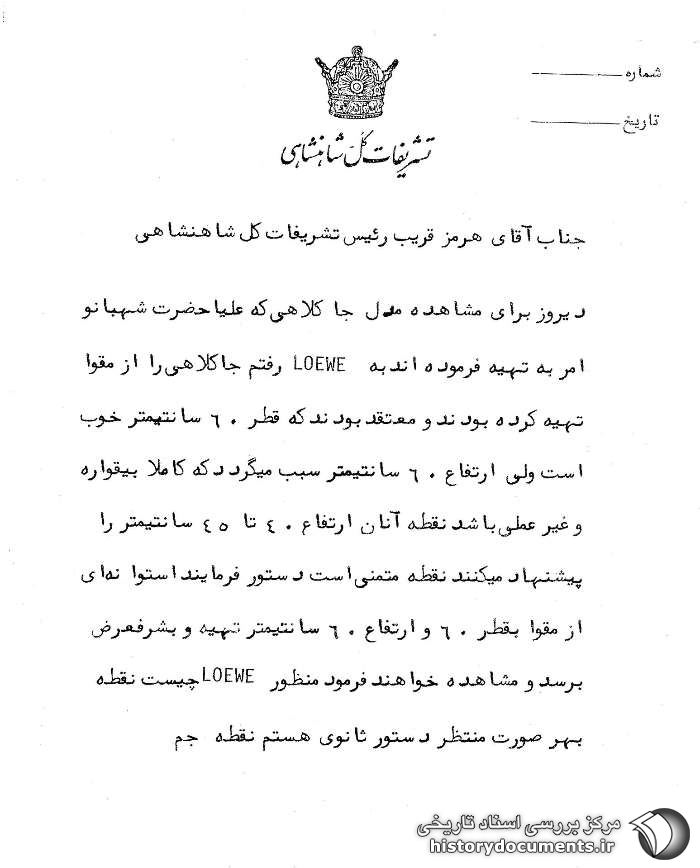 شماره
تاریخ
تشریفات کل شاهنشاهی
جناب آقای هرمز قریب رئیس تشریفات کل شاهنشاهی
دیروز برای مشاهده مدل جا کلاهی که علیاحضرت شهبانو
امر به تهیه فرموده اند به LOEWE رفتم جاکلاهی را از مقوا
تهیه کرده بودند و معتقد بودند که قطر ٦٠ سانتیمتر خوب
است ولی ارتفاع ٦٠ سانتیمتر سبب میگردد که کاملا بیقواره
و غیر عملی باشد نقطه آنان ارتفاع ٤٠ تا ٤٥ سانتیمتر را
پیشنهاد میکنند نقطه متمنی است دستور فرمایند استوانه ای
از مقوا بقطر ٦٠ و ارتفاع ٦٠ سانتیمتر تهیه و بشرفعرض
برسد و مشاهده خواهند فرمود منظور LOEWE چیست نقطه
بهر صورت منتظر دستور ثانوی هستم نقطه جم
مرکز بررسی اسناد تاریخی
historydocuments.ir